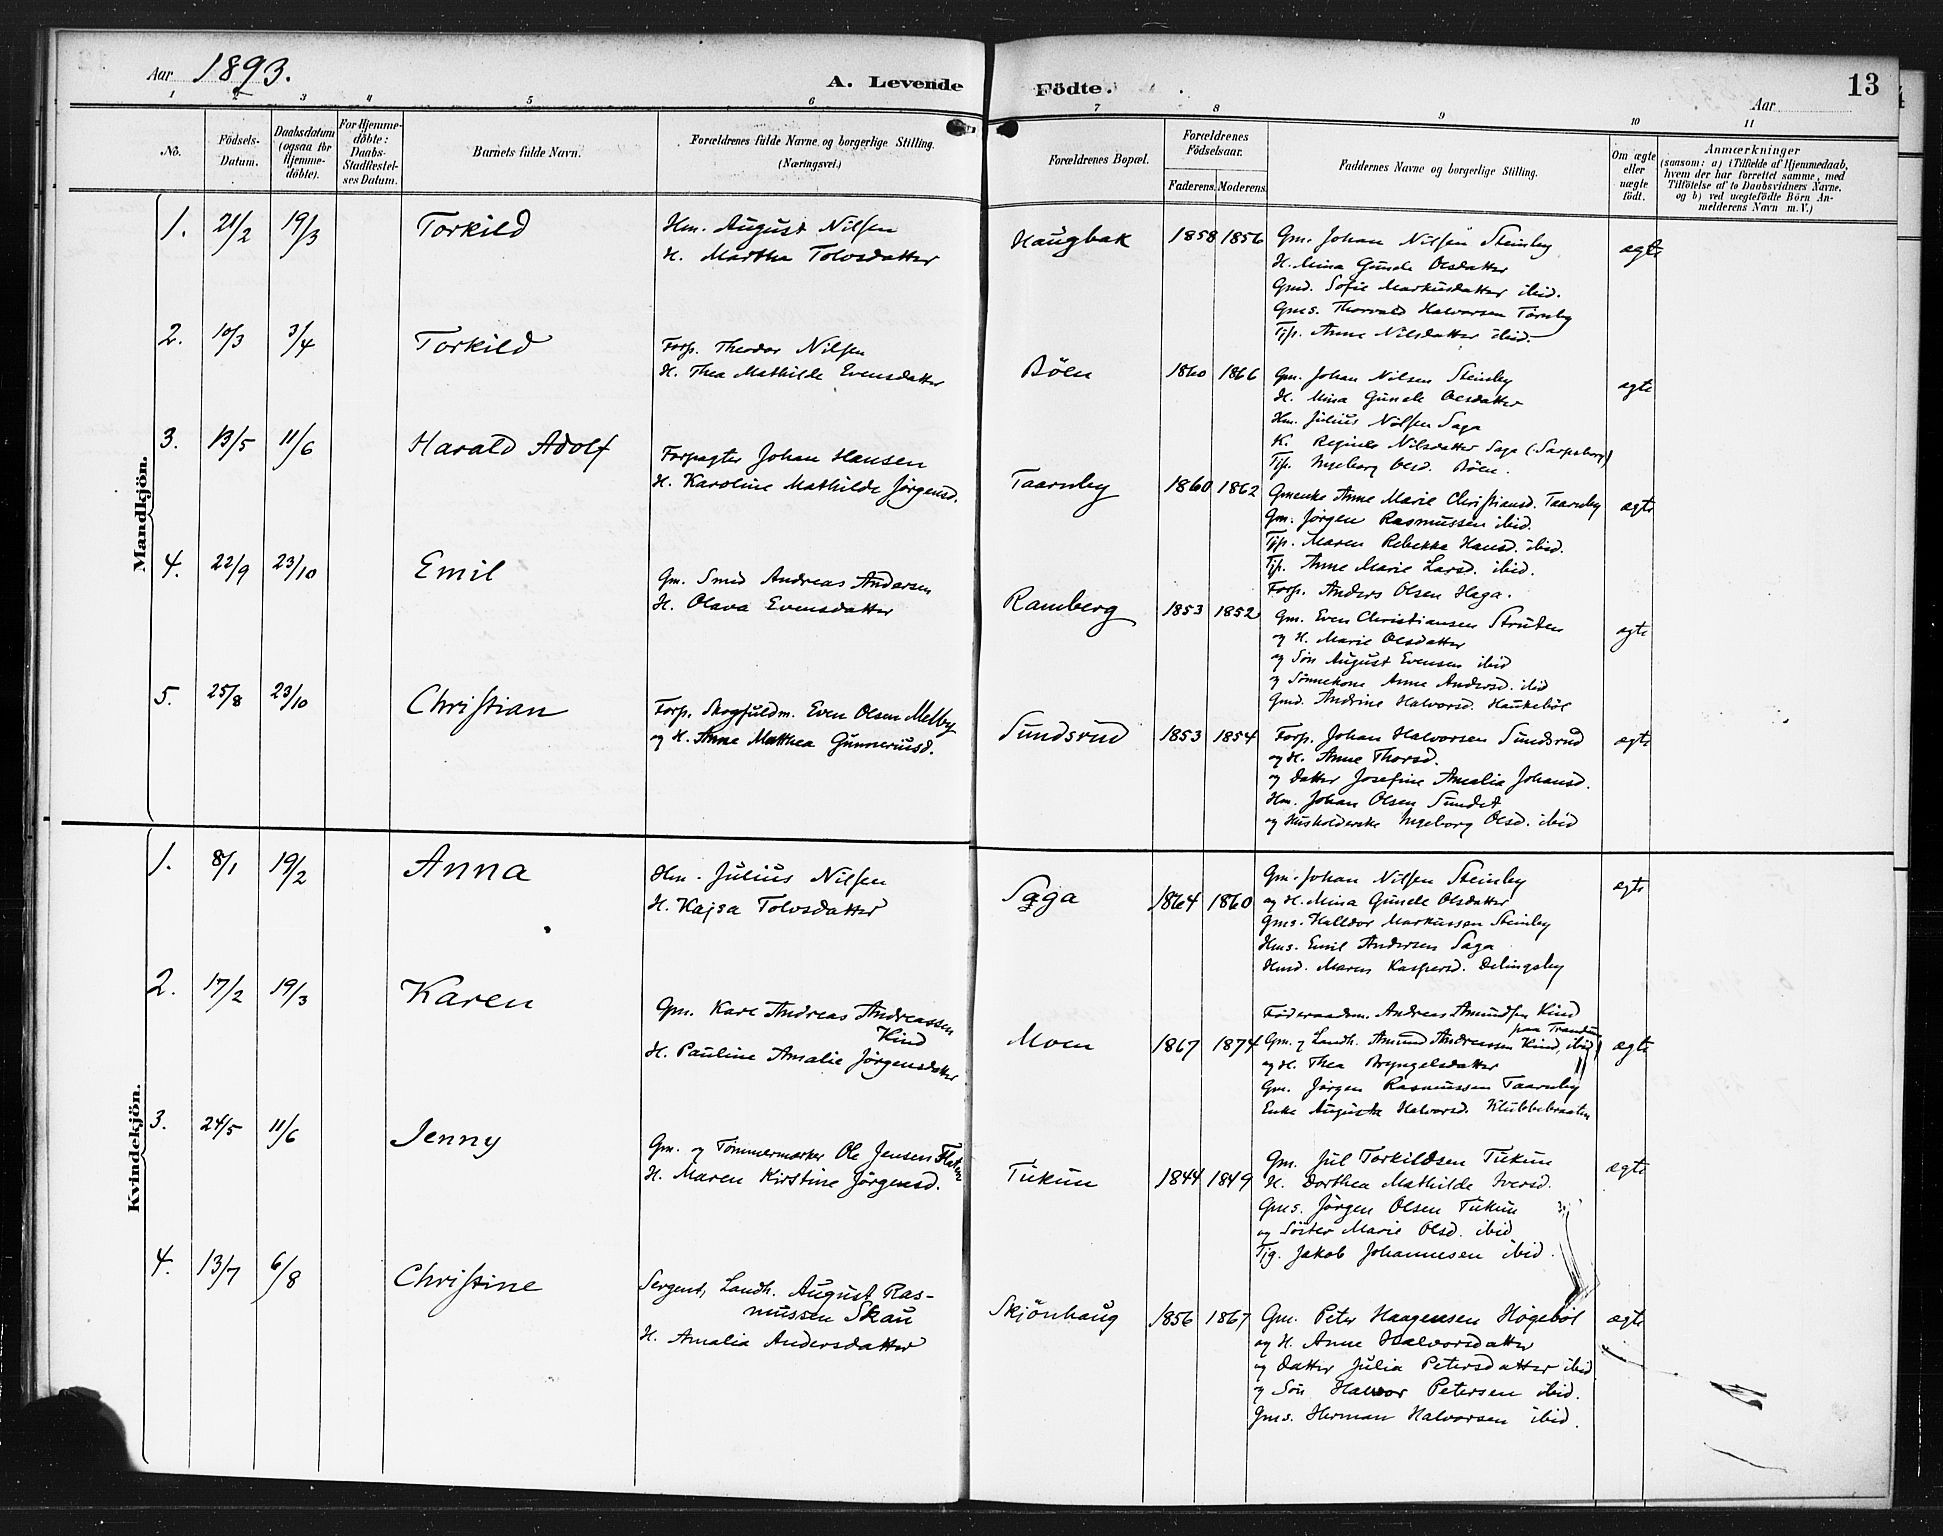 Aar 1893.
A. Levende Födte.
13
Aar
1 2 3 4 5 6 7 8 9 10 11
No.
Födsels-Datum.
Daabsdatum (ogsaa for Hjemme-döbte).
For Hjemme-döbte: Daabs-Stadfæstel-ses Datum.
Barnets fulde Navn.
Forældrenes fulde Navne og borgerlige Stilling. (Næringsvei.)
Forældrenes Bopæl.
Forældrenes Födselsaar.
Faderens. Moderens.
Faddernes Navne og borgerlige Stilling.
Om ægte eller uægte födt.
Anmærkninger
(saasom: a) i Tilfælde af Hjemmedaab,
hvem der har forrettet samme, med
Tilföielse af to Daabsvidners Navne.
og b) ved uægtefödte Börn An-
melderens Navn m. V.)
Mandkjön.
1. 21/2 19/3 Torkild
Hm. August Nilsen
H. Marthe Tolvsdatter
Haugbak 1858 1856
Gm. Johan Nilsen Steinby
H. Mina Gunde Olsdatter
Gmd. Sofie Markusdatter ibid.
Gms. Thorvald Halvorsen Törnby
Tjp. Anne Nilsdatter ibid.
ægte
2. 10/3 3/4 Torkild
Forp. Theodor Nilsen
H. Thea Mathilde Evensdatter
Böen 1860 1866
Gm. Johan Nilsen Steinby
H. Mina Gunde Olsdatter
Hm. Julius Nilsen Saga
K. Regine Nilsdatter Saga (Sarpsborg)
Tjp. Ingeborg Olsd. Böen.
ægte
3. 13/5 11/6 Harald Adolf
Forpagter Johan Hansen
H. Karoline Mathilde Jörgensd.
Taarnby 1860 1862
Gmenke Anne Marie Christiansd. Taarnby
Gm. Jörgen Rasmussen ibid.
Tjp. Maren Rebekka Hansd. ibid.
Tjp. Anne Marie Larsd. ibid.
Forp. Anders Olsen Haga.
ægte
4. 22/9 23/10 Emil
Gm. Smed Andreas Andersen
H. Olava Evensdatter
Ramberg 1853 1852
Gm. Even Christiansen Struten
og H. Marie Olsdatter
og Sön August Evensen ibid
og Sönnekone Anne Andersd. ibid
Gmd. Andrine Halvorsd. Haukeböl
ægte
5. 25/8 23/10 Christian
Forp. Skogfuldm. Even Olsen Melby
og H. Anne Mathea Gunneriusd.
Sundsrud 1853 1854
Forp. Johan Halvorsen Sundsrud
og H. Anne Thorsd.
og Datter Josefine Amalia Johansd.
Hm. Johan Olsen Sundet
og Husholderske Ingeborg Olsd. ibid
ægte
Kvindekjön.
1. 8/1 19/2 Anna
Hm. Julius Nilsen
H. Kajsa Tolvsdatter
Saga 1864 1860
Gm. Johan Nilsen Steinby
og H. Mina Gunde Olsdatter
Gms. Halldor Markussen Steinby
Hms. Emil Andersen Saga
Hmd. Maren Kaspersd. Delingsby
ægte
2. 17/2 19/3 Karen
Gm. Karl Andreas Andreassen
Kind
H. Pauline Amalie Jörgensdatter
Moen 1867 1874
Föderaadsm. Andreas Amundsen Kind
paa Trandum
Gm. og Landh. Amund Andreassen Kind, ibid
og H. Thea Bryngelsdatter
Gm. Jörgen Rasmussen Taarnby
Enke Augusta Halvorsd. Klubbebraaten
ægte
3. 24/5 11/6 Jenny
Gm. og Tömmermærker Ole Jensen Flaten
H. Maren Kirstine Jörgensd.
Tukun 1844 1849
Gm. Jul Torkildsen Tukun
H. Dorthea Mathilde Iversd.
Gms. Jörgen Olsen Tukun
og Söster Marie Olsd. ibid
Tjg. Jakob Johannesen ibid.
ægte
4. 13/7 6/8 Christine
Sergent, Landh. August Ras-
mussen Skau
H. Amalia Andersdatter
Skjönhaug 1856 1867
Gm. Peter Haagensen Högeböl
og H. Anne Halvorsdatter
og Datter Julia Petersdatter ibid
og Sön Halvor Petersen ibid.
Gms. Herman Halvorsen ibid.
ægte